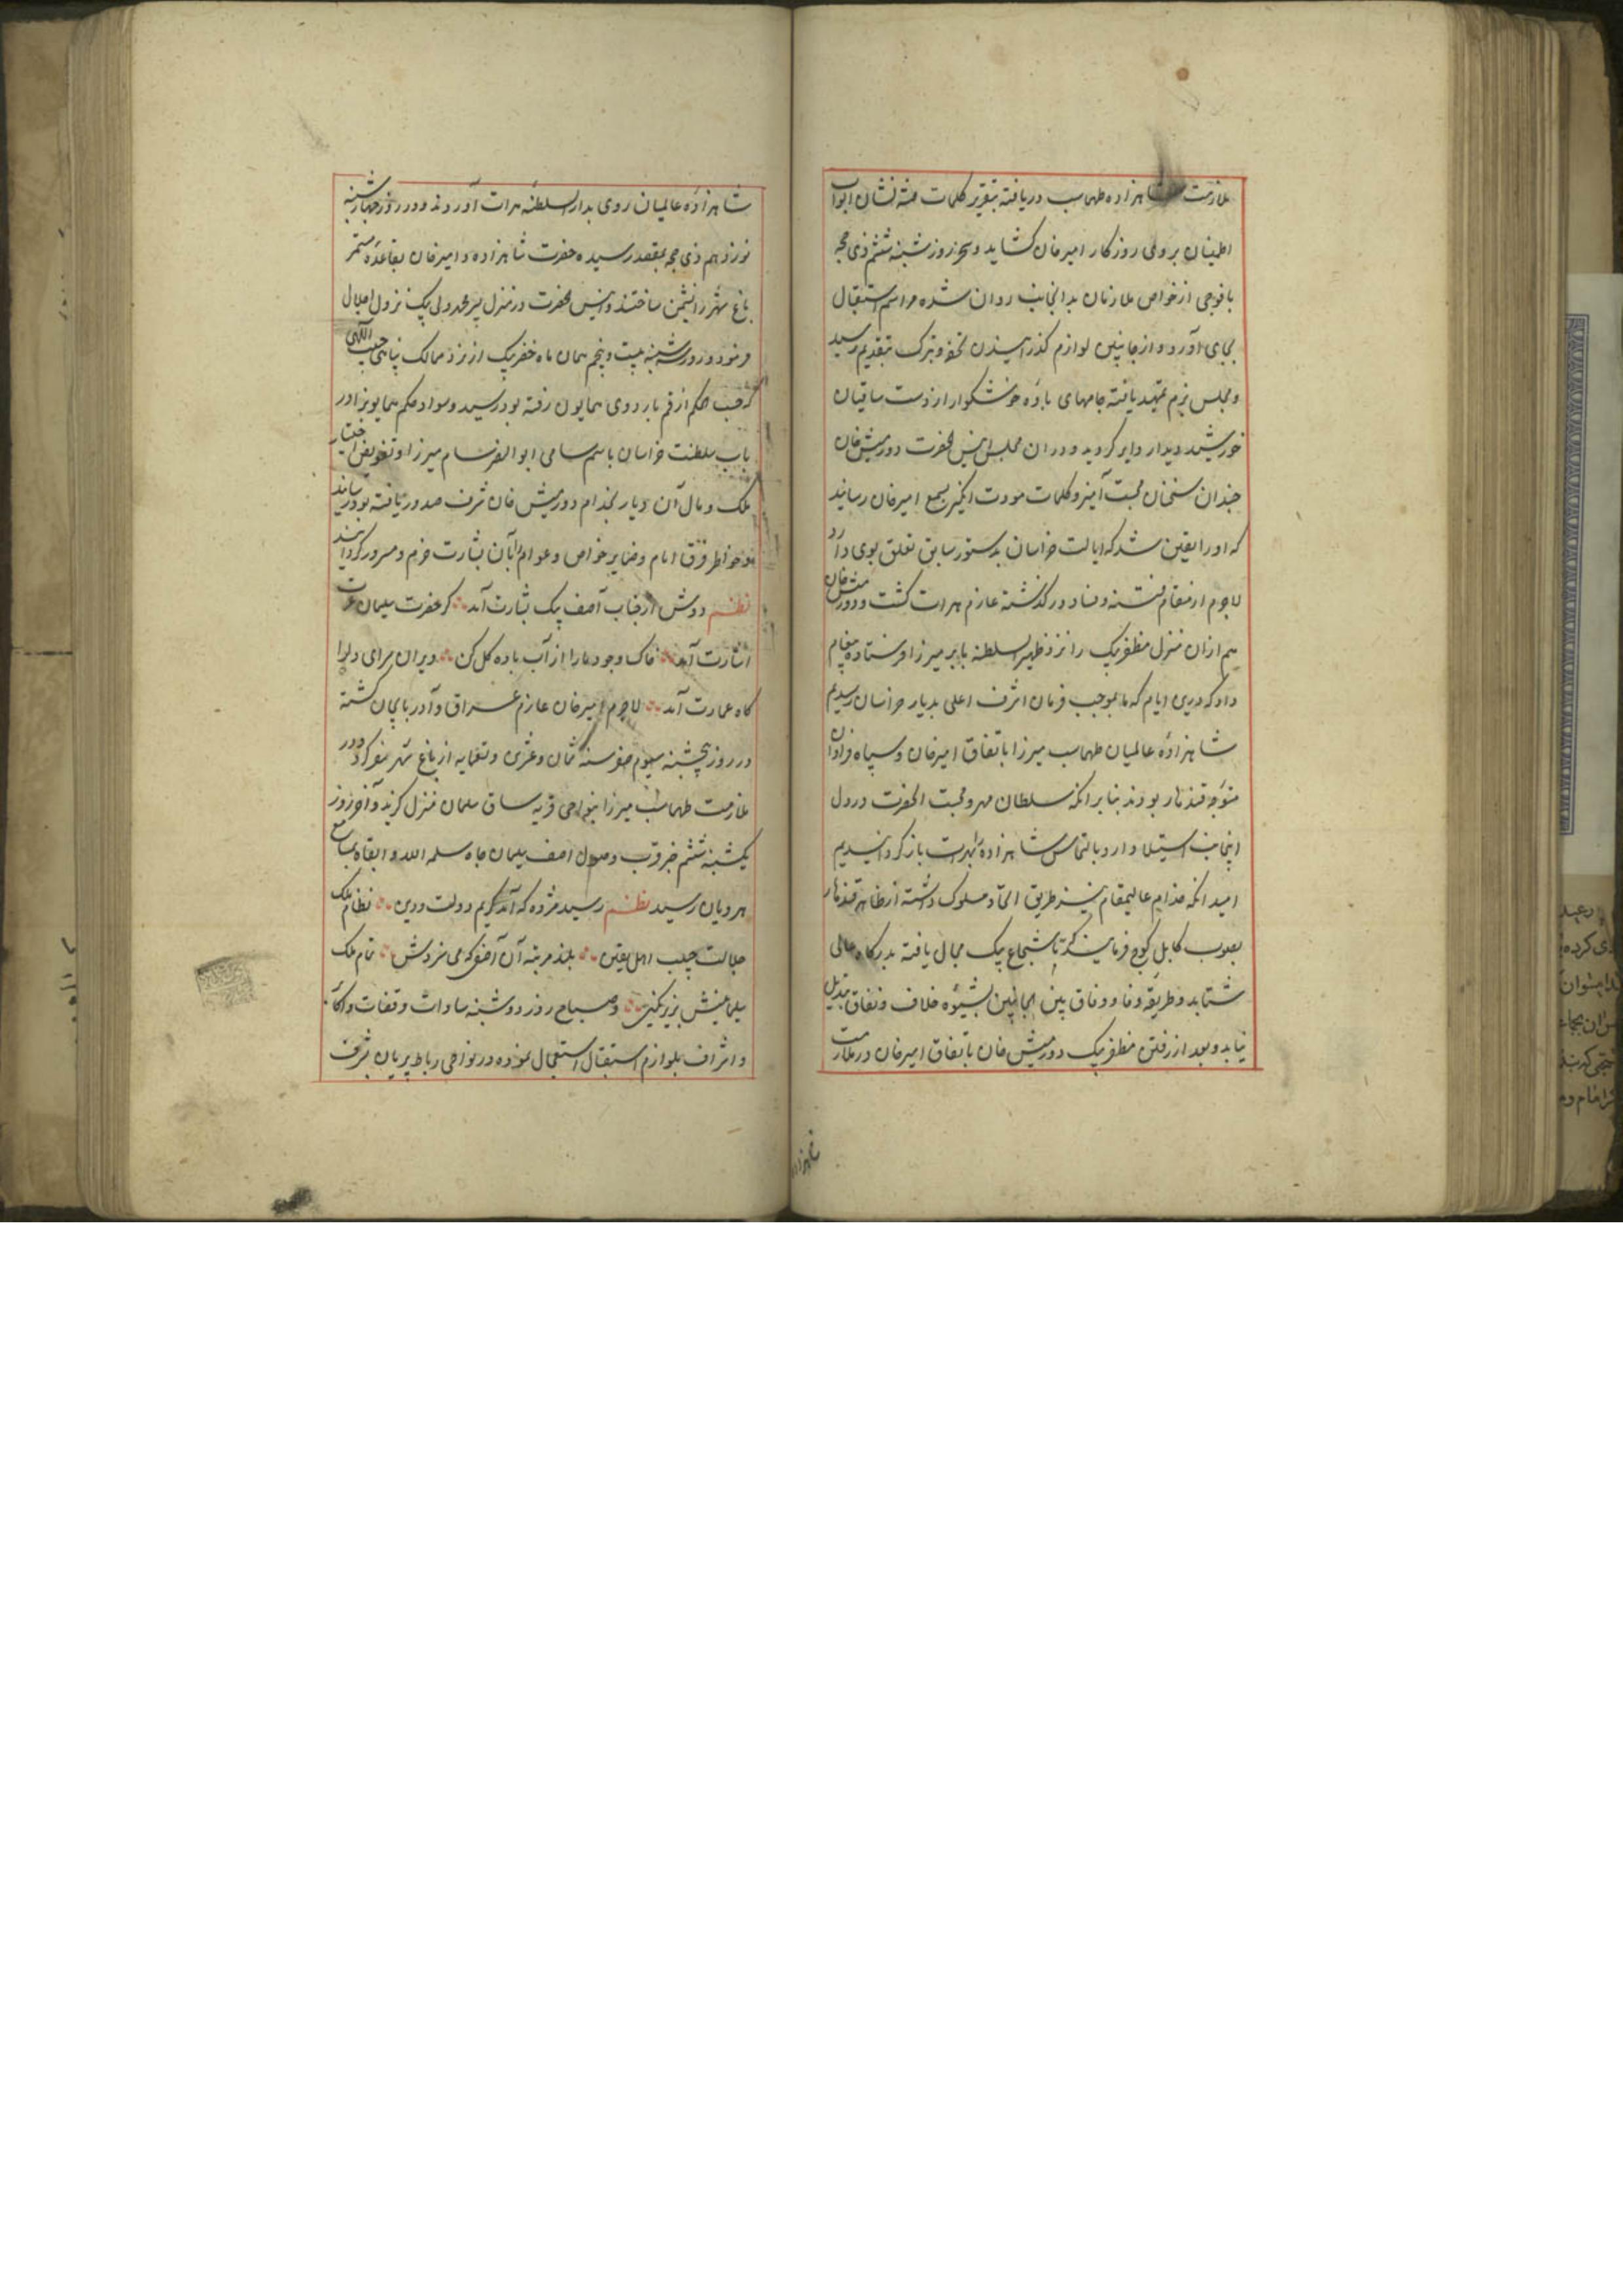 ملازمت شاهزاده طهماسب دریافته بتقریر کلمات نشان ابواب
اطمینان بروی روزکار امیرخان کشاید و سحر روز شنبه ششم ذی حجه
با فوجی از خواص ملازمان بدانجانب روان شده مراسم استقبال
بجای آورد و از جانبین لوازم کذرانیدن تحف و تبرک بتقدیم رسید
و مجلس بزم تمهید یافته جامهای باده خوشکوار از دست ساقیان
خورشید دیدار دایر کردید و دران مجلس انیس الحضرت دورمیش خان
چندان سخنان محبت آمیز و کلمات مودت انکیز بسمع امیرخان رسانید
که او را یقین شد که ایالت خراسان بدستور سابق تعلق بوی دارد
لاجرم از مقام فتنه و فساد در کذشته عازم هرات کشت و دورمیش خان
هم ازان منزل مظفر بیک را نزد ظهیر السلطنه بابر میرزا فرستاده پیغام
داد که درین ایام که ما بموجب فرمان اشرف اعلی بدیار خراسان رسیدیم
شاهزاده عالمیان طهماسب میرزا باتفاق امیرخان و سپاه فراوان
متوجه قندهار بودند بنابر انکه سلطان مهر و محبت الحضرت در دل
اینجانب استیلا دارد بالتماس شاهزاده بهرات باز کردانیدیم
امید انکه خدام عالیمقام نیز طریق اتحاد مسلوک داشته از ظاهر قندهار
بصوب کابل کوچ فرمایند که تا شجاع بیک مجال یافته بدرکاه عالی
شتابد و طریقه وفا و وفاق بین الجانبین بشیوه خلاف و نفاق تبدیل
نیابد و بعد از رفتن مظفر بیک دورمیش خان باتفاق امیرخان در ملازمت
شاهزاده
شاهزاده عالمیان روی بدار السلطنه هرات آوردند و در روز چهارشنبه
نوزدهم ذی حجه بمقصد رسیده حضرت شاهزاده و امیرخان بقاعده مستمر
باغ شهر را نشیمن ساختند و انیس الحضرت در منزل پیر محمد ولی بیک نزول اجلال
فرمود و روز شنبه بیست و پنجم همان ماه خضر بیک از نزد ممالک پناهی حبیب اللهی
که حسب الحکم از قم باردوی همایون رفته بود رسید و سواد حکم همایونرا در
باب سلطنت خراسان باسم سامی ابو الفتح سام میرزا و تفویض اختیار
ملک و مال آن دیار بخدام دورمیش خان شرف صدور یافته بود رسانید
و خواطر فرق انام و ضمایر خواص و عوام آن بشارت خرم و مسرور کردانید
نظم دوش از جناب آصف پیک بشارت آمد کز حضرت سلیمان عشرت
اشارت آمد خاک وجود ما را از آب باده کل کن ویران سرای دلرا
کاه عمارت آمد لاجرم امیرخان عازم عراق و آذربایجان کشته
در روز پنجشنبه سیوم صفر سنه ثمان و عشرین و تسعمایه از باغ شهر سفر کرد و در
ملازمت طهماسب میرزا بنواحی قریه ساق سلمان منزل کزید و آخر روز
یکشنبه ششم خبر قرب وصول آصف سلیمان جاه سلمه الله و ابقاه بمسامع
هرویان رسید نظم رسید مژده که آمد کریم دولت و دین نظام ملک
جلالت حبیب اهل یقین بلند مرتبه آن آصفی که می سزدش تمام ملک
سلیمانیش بزیر نکین و صباح روز دوشنبه سادات و قضات و اکابر
و اشراف بلوازم استقبال استعجال نموده در نواحی رباط پریان شرف